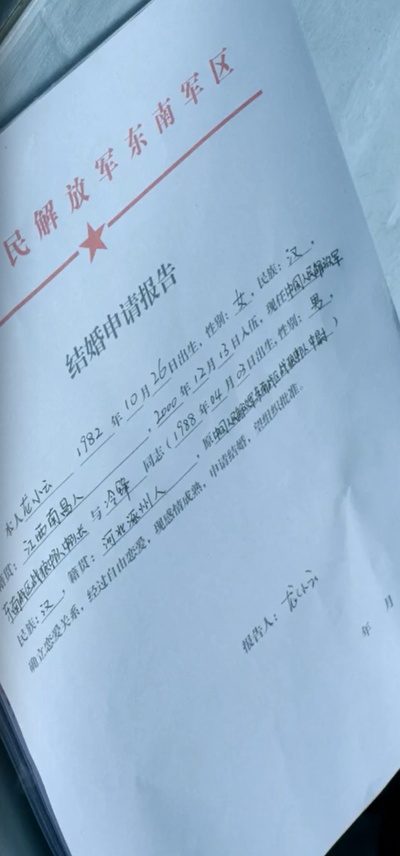 民解放军东南军区
结婚申请报告
本人龙小云 1982 年 10 月 26 日出生，性别：女，民族：汉，
籍贯：江西南昌人，2000 年 12 月 13 日入伍，现任中国人民解放军
东南战区战狼中队
与 冷锋 同志（1988 年 04 月 03 日出生，性别：男，
民族：汉，籍贯：河北涿州人，原中国人民解放军东南战区战狼中队中尉）
确立恋爱关系，经过自由恋爱，现感情成熟，申请结婚，望组织批准。
报告人：龙小云
年 月